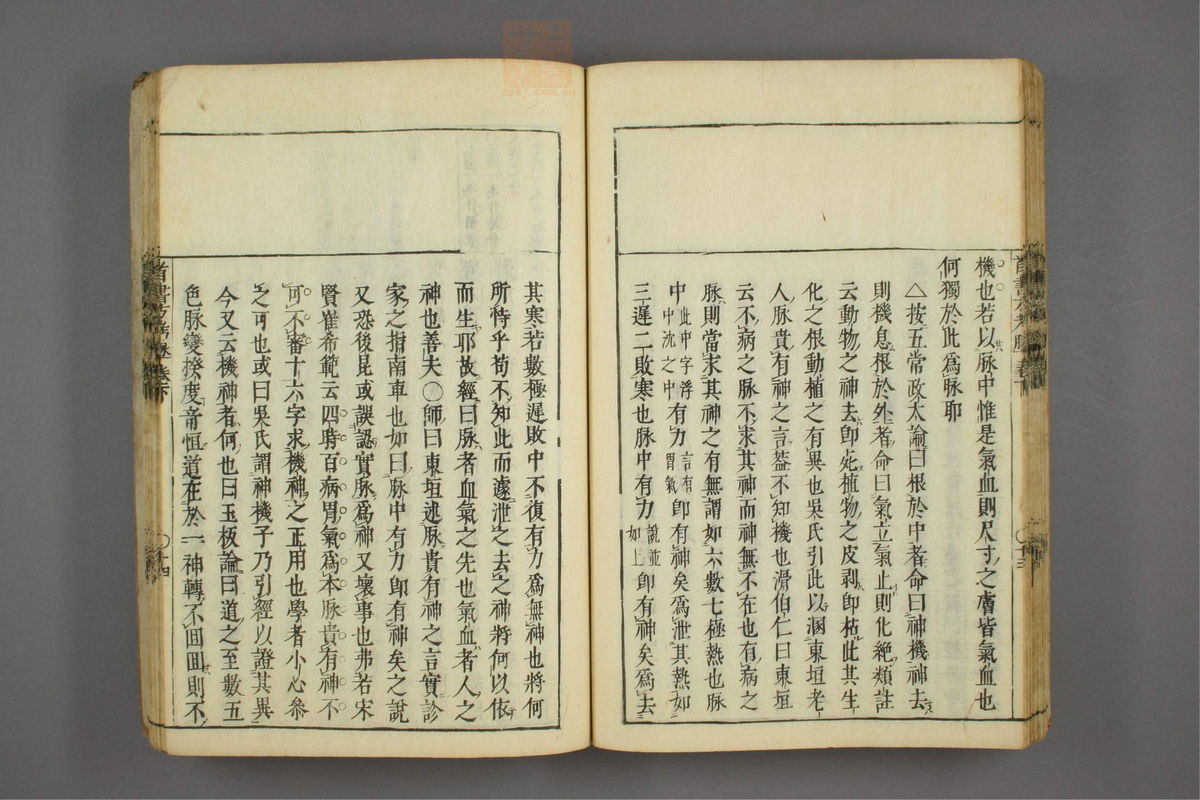 機也若以脉中惟是氣血則尺寸之膚皆氣血也
何獨於此爲脉耶
△按五常政大論曰根於中者命曰神機神去
則機息根於外者命曰氣立氣止則化絶類註
云動物之神去即死植物之皮剥即枯此其生
化之根動植之有異也吳氏引此以溷東垣老
人脉貴有神之言葢不知機也滑伯仁曰東垣
云不病之脉不求其神而神無不在也有病之
脉則當求其神之有無謂如六數七極熱也脉
中此中字浮中沈之中有力言有胃氣即有神矣爲泄其熱如
三遲二敗寒也脉中有力說並如上即有神矣爲去
其寒若數極遲敗中不復有力爲無神也將何
所恃乎苟不知此而遽泄之去之神將何以依
而生耶故經曰脉者血氣之先也氣血者人之
神也善夫〇師曰東垣述脉貴有神之言實診
家之指南車也如曰脉中有力即有神矣之說
又恐後昆或誤認實脉爲神又壞事也弗若宋
賢崔希範云四時百病胃氣爲本脉貴有神不
可不審十六字求機神之正用也學者小心叅
之可也或曰吳氏謂神機子乃引經以證其異
今又云機神者何也曰玉板論曰道之至數五
色脉變揆度奇恒道在於一神轉不回回則不
十三
十四